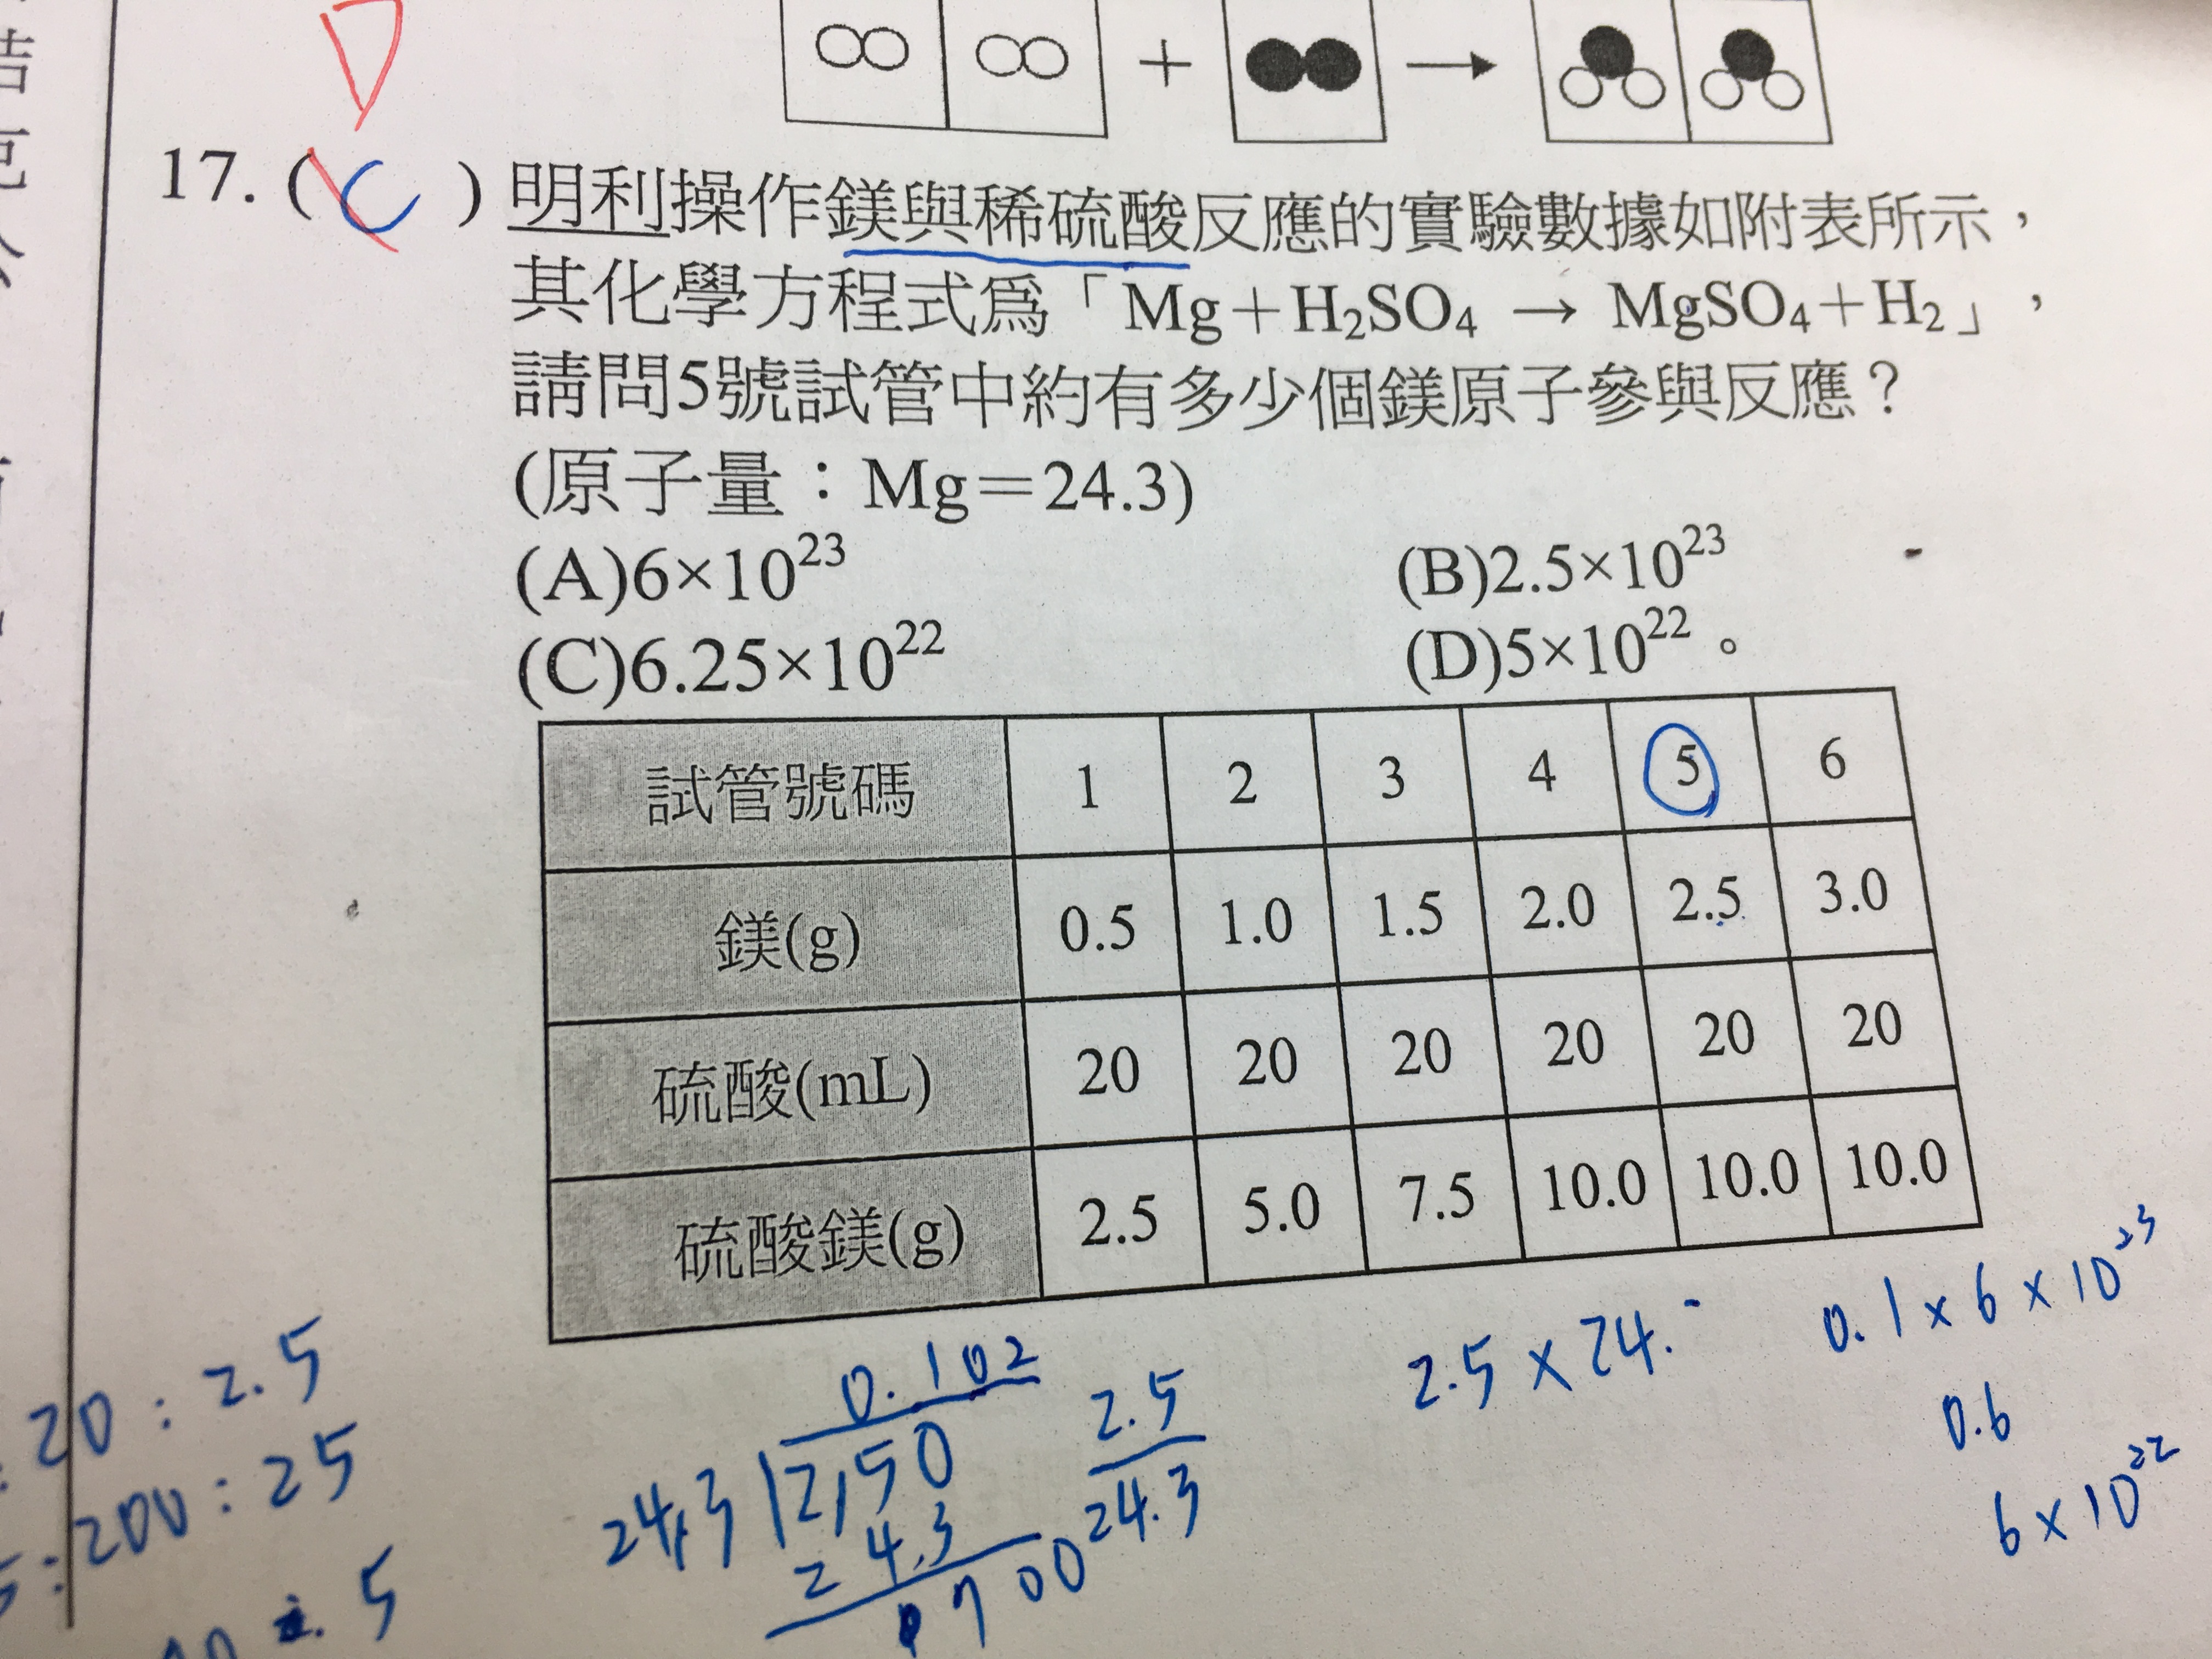 D
+ →
17. ( C ) 明利操作鎂與稀硫酸反應的實驗數據如附表所示，
其化學方程式為「Mg+H₂SO₄ → MgSO₄+H₂」，
請問5號試管中約有多少個鎂原子參與反應？
(原子量：Mg=24.3)
(A)6×10²³ (B)2.5×10²³
(C)6.25×10²² (D)5×10²²。
試管號碼 1 2 3 4 5 6
鎂(g) 0.5 1.0 1.5 2.0 2.5 3.0
硫酸(mL) 20 20 20 20 20 20
硫酸鎂(g) 2.5 5.0 7.5 10.0 10.0 10.0
20 : 2.5
200 : 25
5
0.102
24.3 2.50
24.3
700
2.5
24.3
2.5 × 24.
0.1 × 6 × 10²³
0.6
6 × 10²²